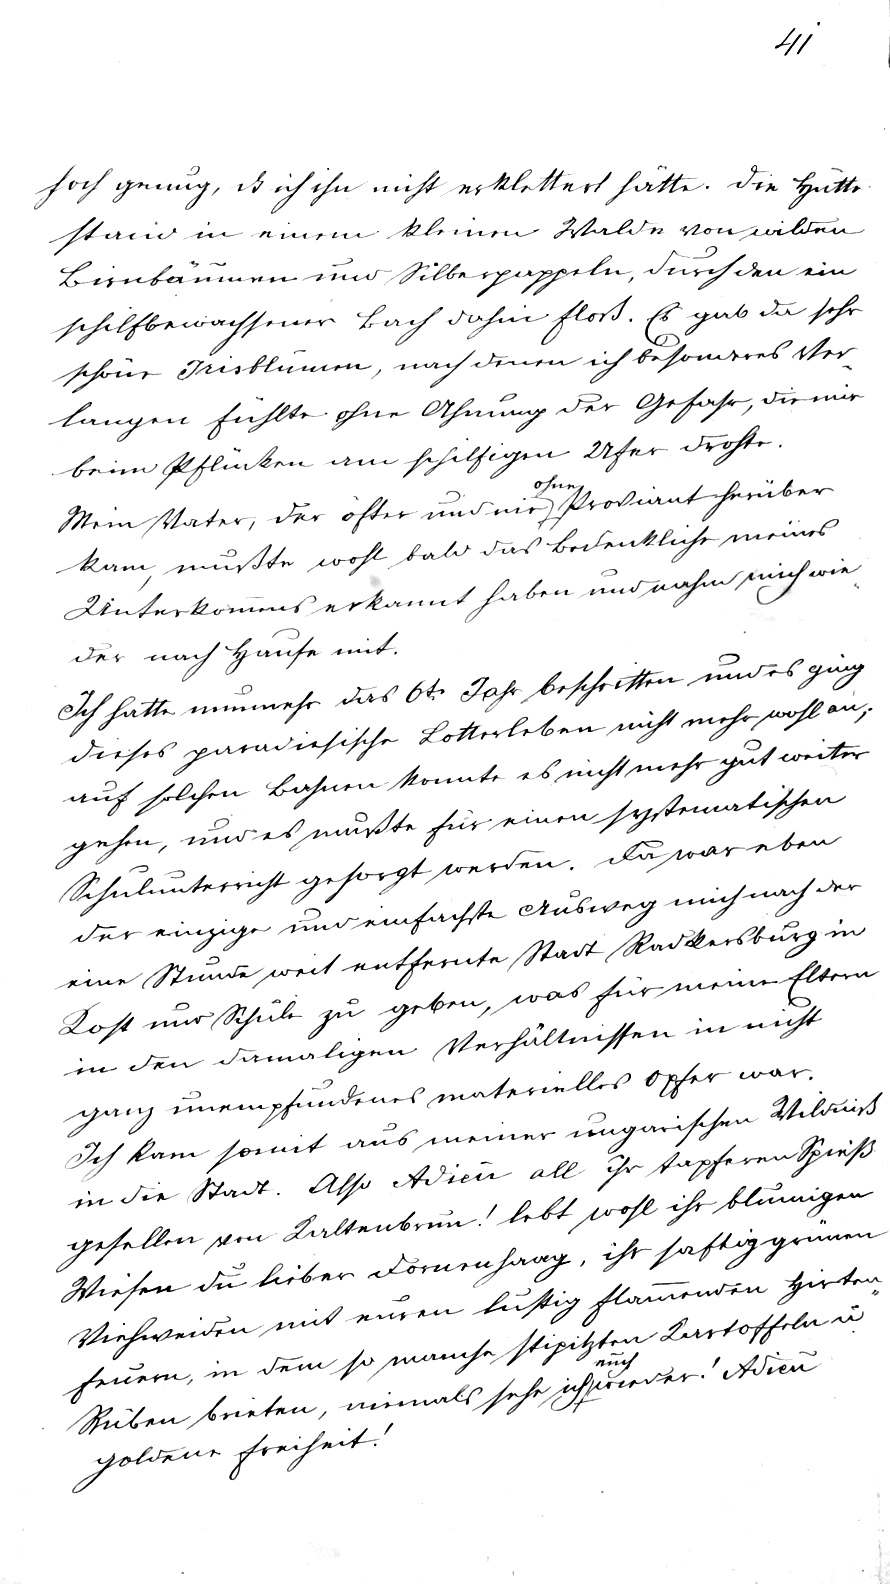 41
hoch genug, daß ich ihn nicht erklettert hätte. Die Hütte
stand in einem kleinen Walde von wilden
Birnbäumen und Silberpappeln, durch den ein
schilfbewachsener Bach dahin floß. Es gab da sehr
schöne Irisblumen, nach denen ich besonderes Ver-
langen fühlte ohne Ahnung der Gefahr, die mir
beim Pflücken am schilfigen Ufer drohte.
Mein Vater, der öfter und nie ohne Proviant herüber
kam, mußte wohl bald das Bedenkliche meines
Unterkommens erkannt haben und nahm mich wie-
der nach Hause mit.
Ich hatte nunmehr das 6te Jahr beschritten und es ging
dieses paradiesische Lotterleben nicht mehr wohl an;
auf solchen Bahnen konnte es nicht mehr gut weiter
gehen, und es mußte für einen systematischen
Schulunterricht gesorgt werden. Da war eben
der einzige und einfachste Ausweg mich nach der
eine Stunde weit entfernte Stadt Radkersburg in
Kost und Schule zu geben, was für meine Eltern
in den damaligen Verhältnissen in nicht
ganz unempfundenes materielles Opfer war.
Ich kam somit aus meiner ungarischen Wildniß
in die Stadt. Also Adieu all ihr tapferen Spieß
gesellen von Kaltenbrun! lebt wohl ihr blumigen
Wiesen du lieber Dornenhaag, ihr saftiggrünen
Viehweiden mit euren lustig flammenden Hirten-
feuern, in dem so manche stipitzten Kartoffeln u
Rüben brieten, niemals sehe ich euch wieder! Adieu
goldene Freiheit!